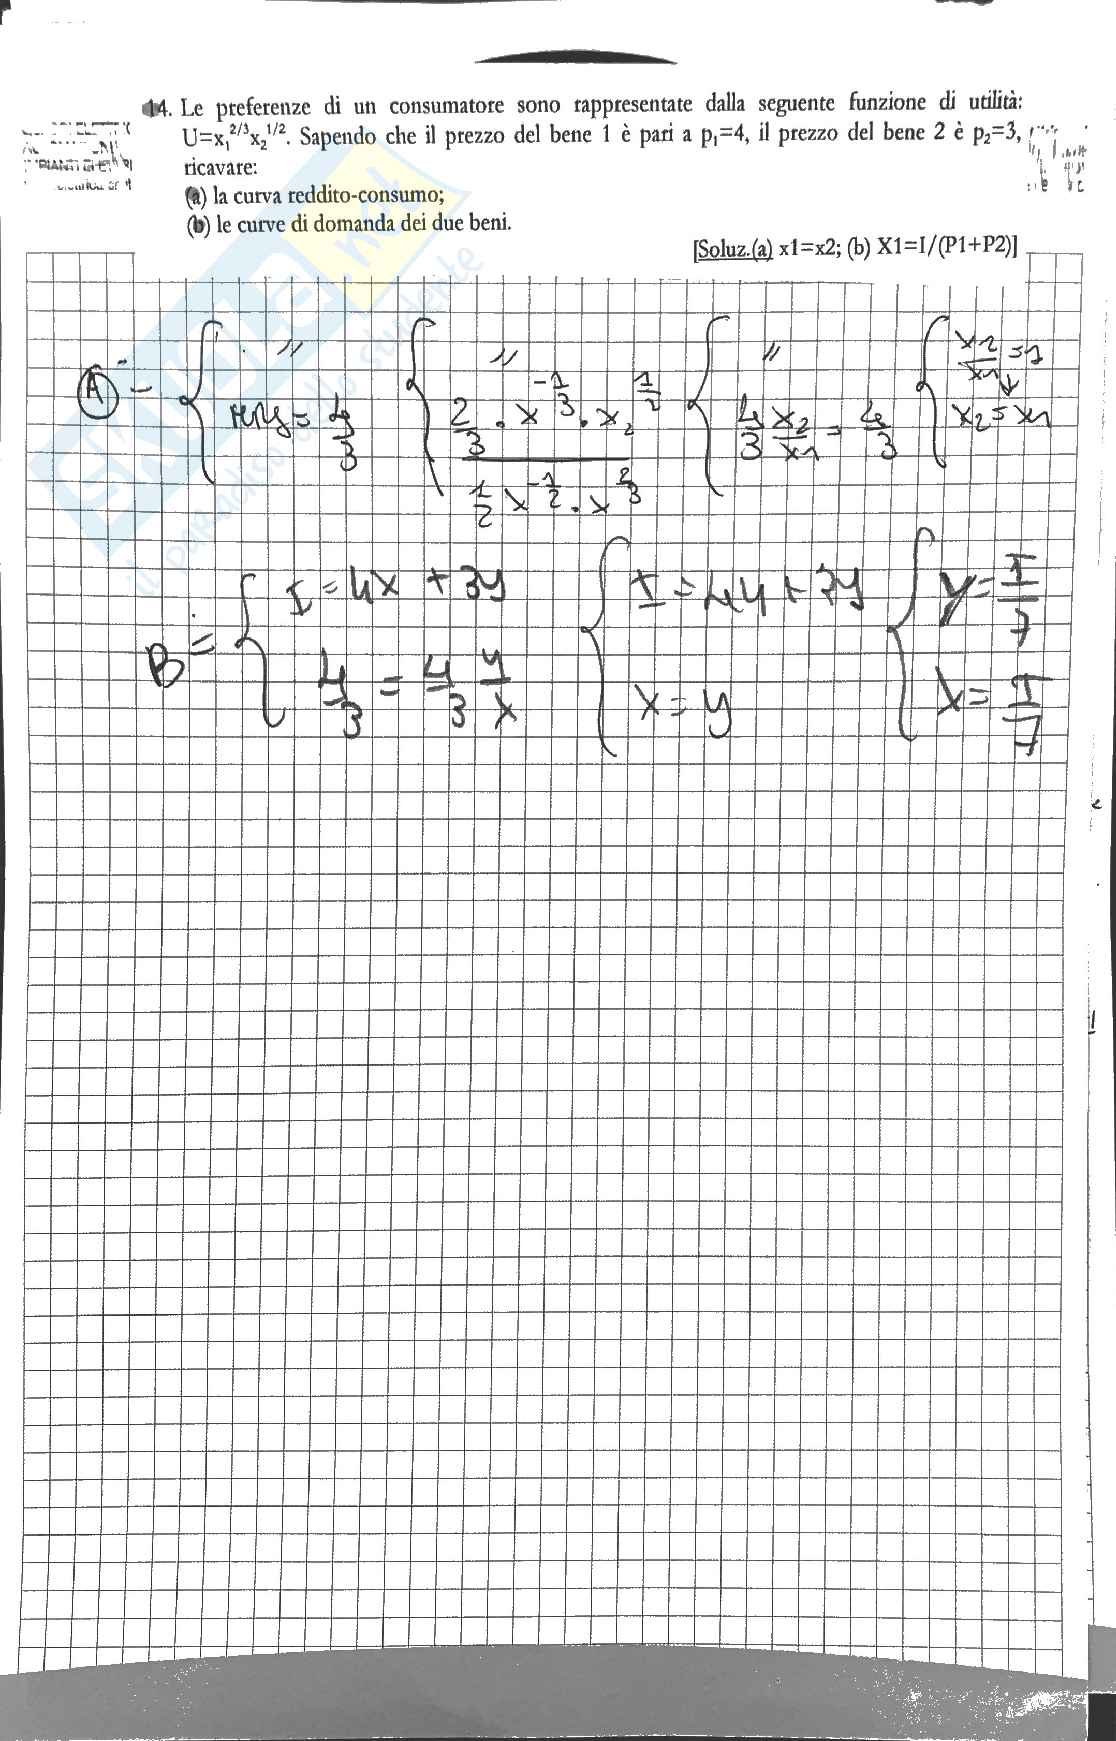 14. Le preferenze di un consumatore sono rappresentate dalla seguente funzione di utilità:
U=x₁^2/3x₂^1/2. Sapendo che il prezzo del bene 1 è pari a p₁=4, il prezzo del bene 2 è p₂=3,
ricavare:
(a) la curva reddito-consumo;
(b) le curve di domanda dei due beni.
[Soluz.(a) x1=x2; (b) X1=I/(P1+P2)]
A - { " { " { " { x2/x1 = 1
= 4/3 2/3 · x^-1/3 · x₂^1/2 / 1/2 x^-1/2 · x^2/3 4/3 x2/x1 = 4/3 x2 = x1
B = { I = 4x + 3y { I = 4y + 3y { y = I/7
4/3 = 4/3 y/x x = y x = I/7
SKUOLA.net
il paradiso dello studente